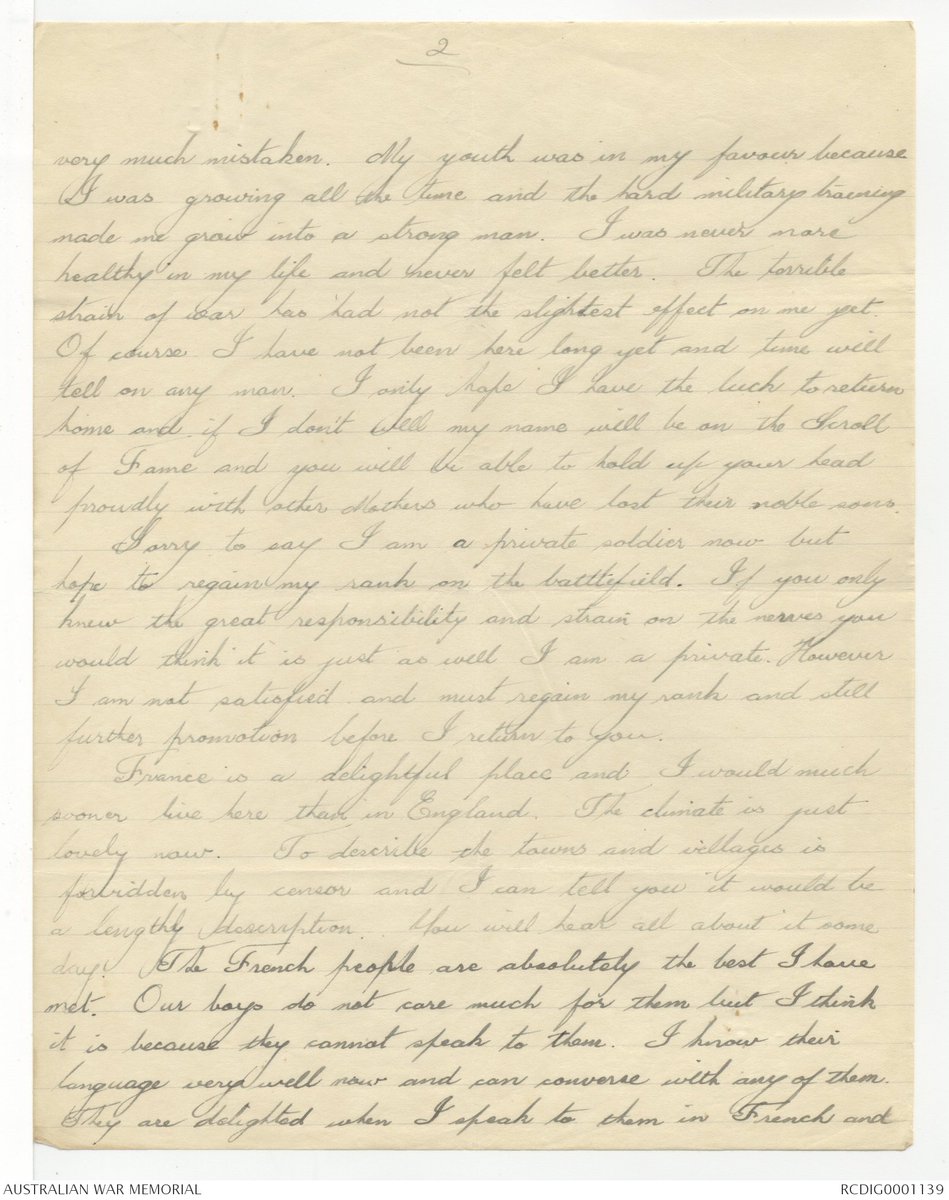 2
very much mistaken. My youth was in my favour because
I was growing all the time and the hard military training
made me grow into a strong man. I was never more
healthy in my life and never felt better. The terrible
strain of war has had not the slightest effect on me yet.
Of course I have not been here long yet and time will
tell on any man. I only hope I have the luck to return
home and if I don't well my name will be on the Scroll
of Fame and you will be able to hold up your head
proudly with other Mothers who have lost their noble sons.
Sorry to say I am a private soldier now but
hope to regain my rank on the battlefield. If you only
knew the great responsibility and strain on the nerves you
would think it is just as well I am a private. However
I am not satisfied and must regain my rank and still
further promotion before I return to you.
France is a delightful place and I would much
sooner live here than in England. The climate is just
lovely now. To describe the towns and villages is
forbidden by censor and I can tell you it would be
a lengthy description. You will hear all about it some
day. The French people are absolutely the best I have
met. Our boys do not care much for them but I think
it is because they cannot speak to them. I know their
language very well now and can converse with any of them.
They are delighted when I speak to them in French and
AUSTRALIAN WAR MEMORIAL
RCDIG0001139